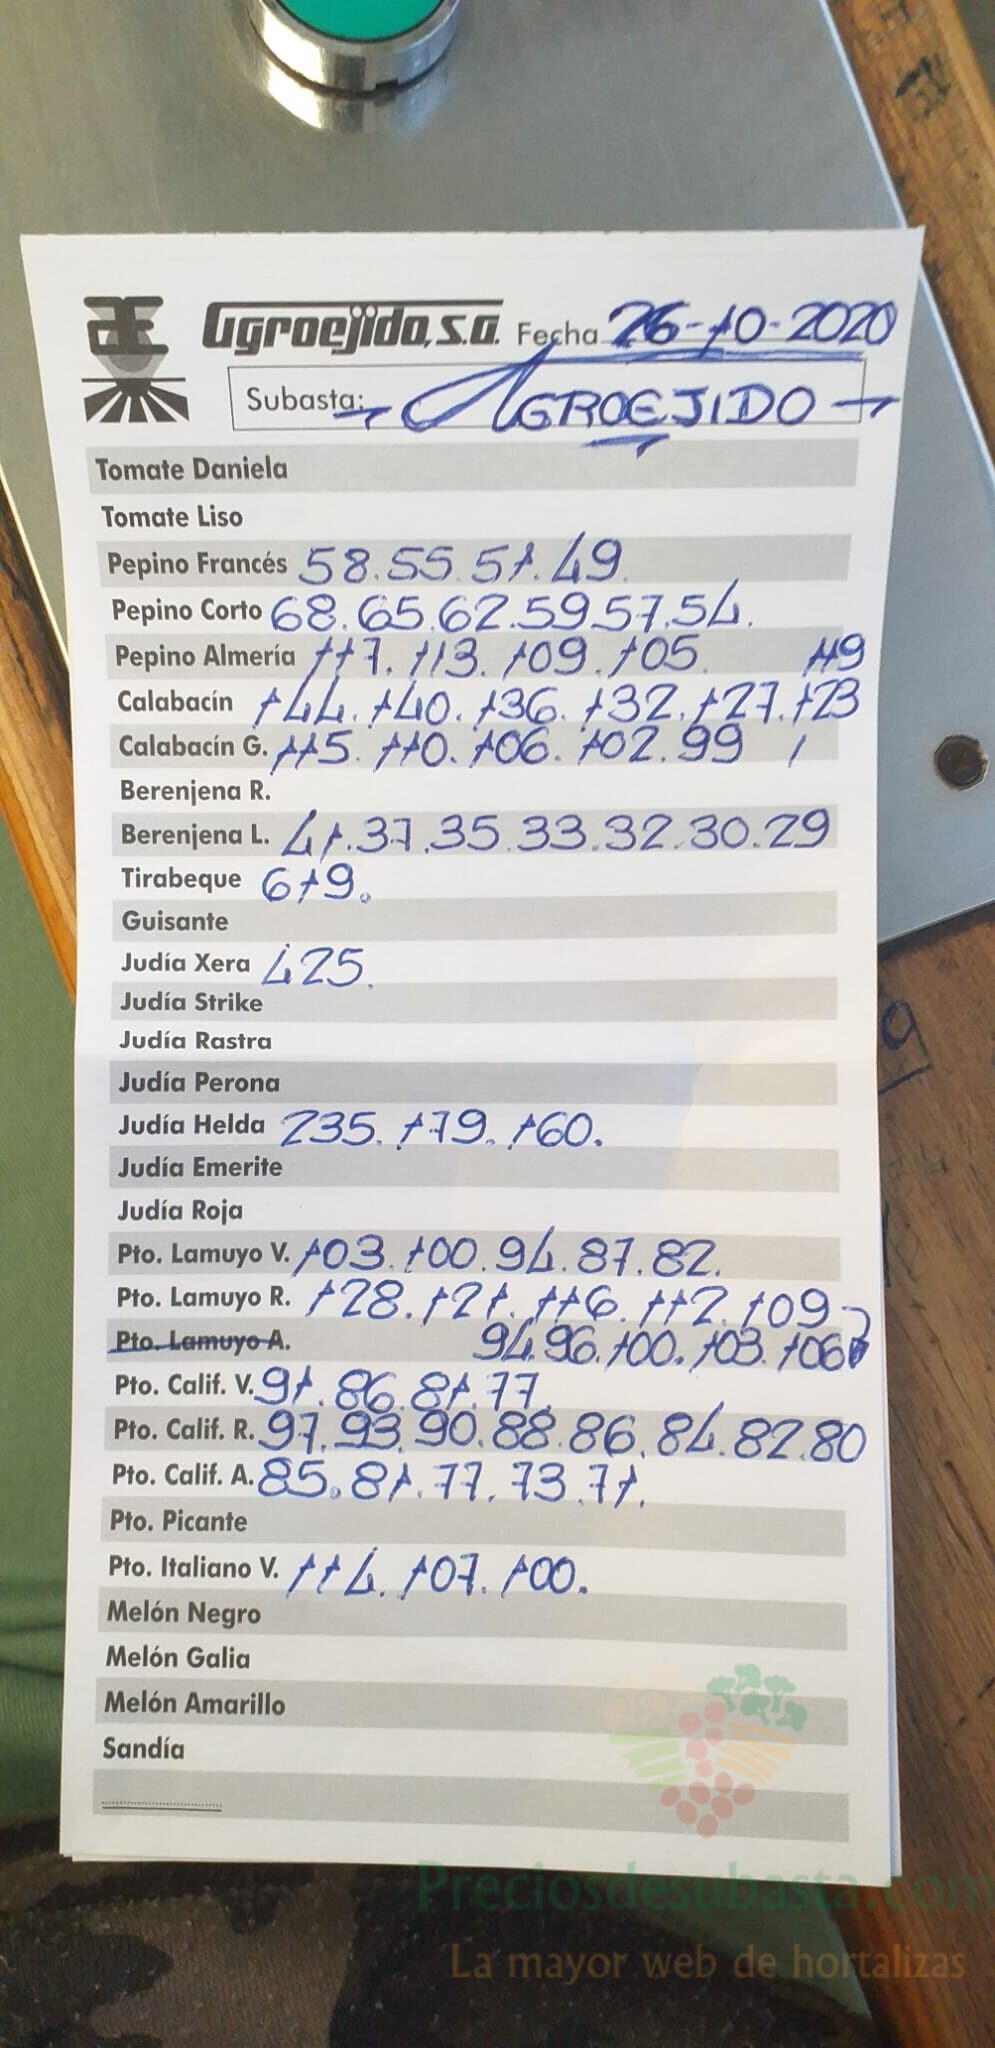 Agroejido, S.A. Fecha 26-10-2020
Subasta: AGROEJIDO
Tomate Daniela
Tomate Liso
Pepino Francés 58.55.51.49.
Pepino Corto 68.65.62.59.57.54.
Pepino Almería 117.113.109.105. 119
Calabacín 144.140.136.132.127.123
Calabacín G. 115.110.106.102.99
Berenjena R.
Berenjena L. 41.37.35.33.32.30.29
Tirabeque 619.
Guisante
Judía Xera 425.
Judía Strike
Judía Rastra
Judía Perona
Judía Helda 235.179.160.
Judía Emerite
Judía Roja
Pto. Lamuyo V. 103.100.94.87.82.
Pto. Lamuyo R. 128.121.116.112.109
Pto. Lamuyo A. 94.96.100.103.106
Pto. Calif. V. 91.86.81.77.
Pto. Calif. R. 97.93.90.88.86.84.82.80
Pto. Calif. A. 85.81.77.73.71.
Pto. Picante
Pto. Italiano V. 114.107.100.
Melón Negro
Melón Galia
Melón Amarillo
Sandía
Preciosdesubasta.com
La mayor web de hortalizas